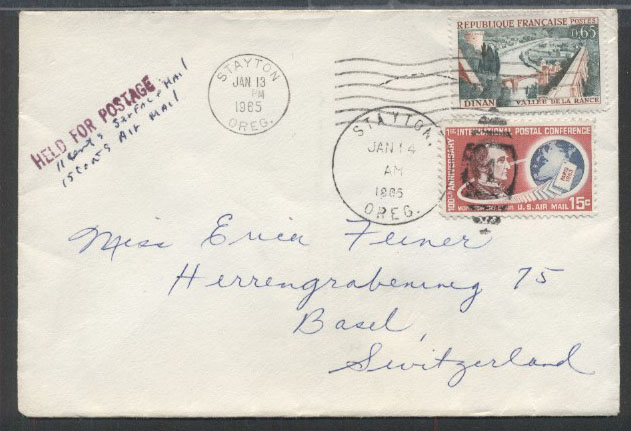 HELD FOR POSTAGE
11 cents surface Mail
15 cents Air Mail
STAYTON
JAN 13
PM
1965
OREG.
REPUBLIQUE FRANÇAISE POSTES
0,65
DINAN VALLÉE DE LA RANCE
STAYTON.
JAN 14
AM
1965
OREG.
1ST INTERNATIONAL POSTAL CONFERENCE
100TH ANNIVERSARY
PARIS
1863
U.S. AIR MAIL 15c
Miss Erica Feiner
Herrengrabenineg 75
Basel,
Switzerland